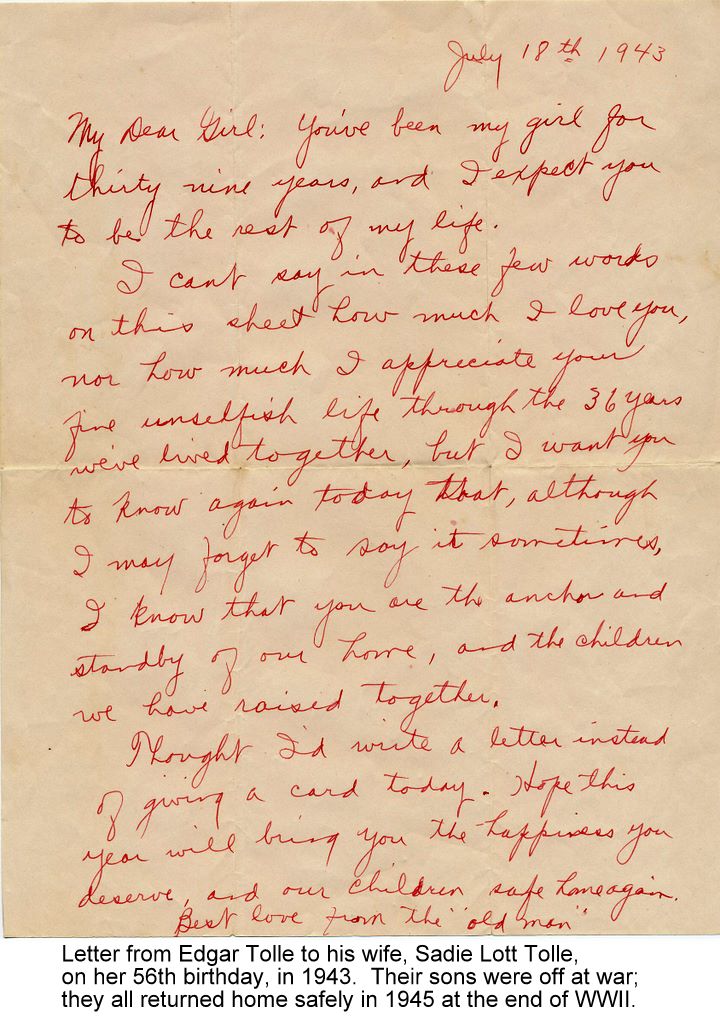 July 18th 1943
My Dear Girl: You've been my girl for
thirty nine years, and I expect you
to be the rest of my life.
I cant say in these few words
on this sheet how much I love you,
nor how much I appreciate your
fine unselfish life through the 36 years
we've lived together, but I want you
to know again today that, although
I may forget to say it sometimes,
I know that you are the anchor and
standby of our home, and the children
we have raised together.
Thought I'd write a letter instead
of giving a card today. Hope this
year will bring you the happiness you
deserve, and our children safe home again.
Best love from the "old man"
Letter from Edgar Tolle to his wife, Sadie Lott Tolle,
on her 56th birthday, in 1943.  Their sons were off at war;
they all returned home safely in 1945 at the end of WWII.